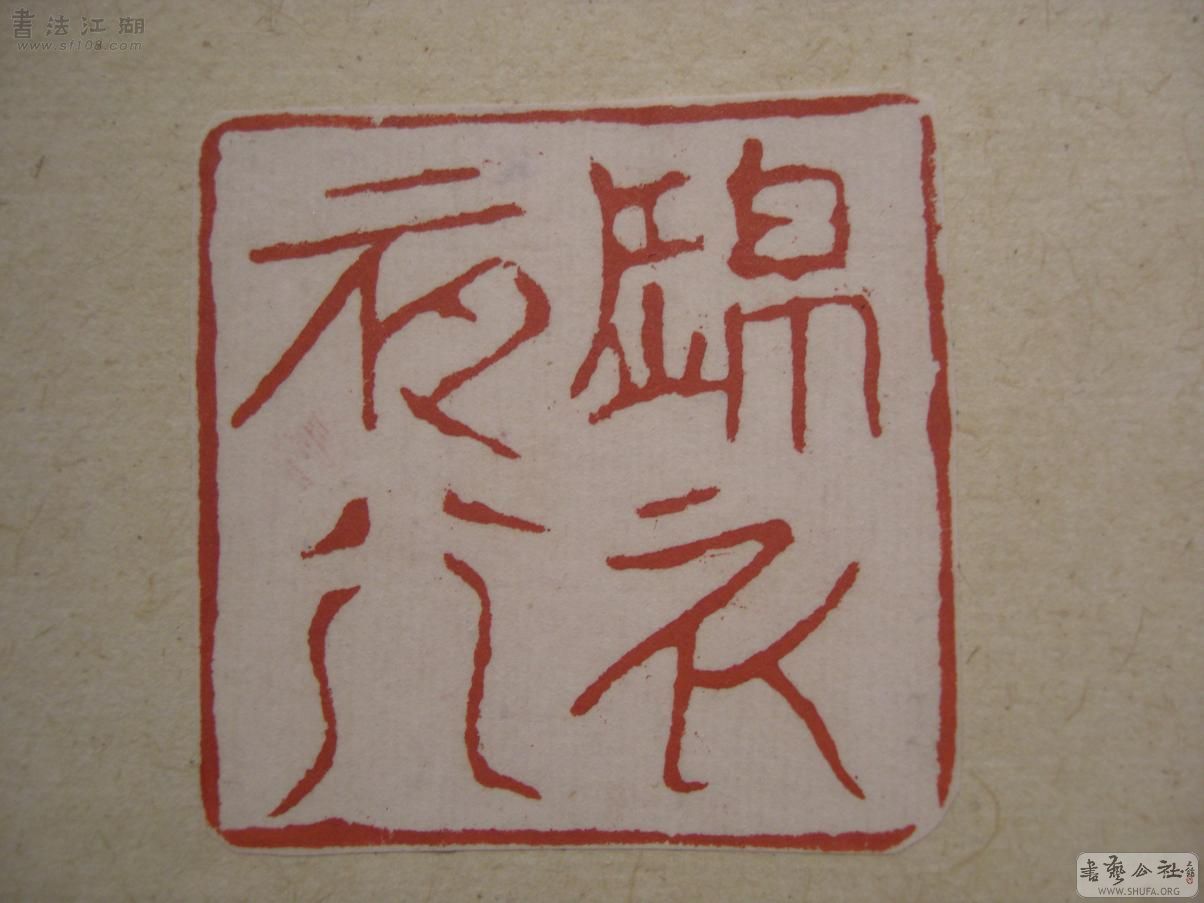 書法江湖
www.sf108.com
錦衣
夜行
書藝公社
WWW.SHUFA.ORG